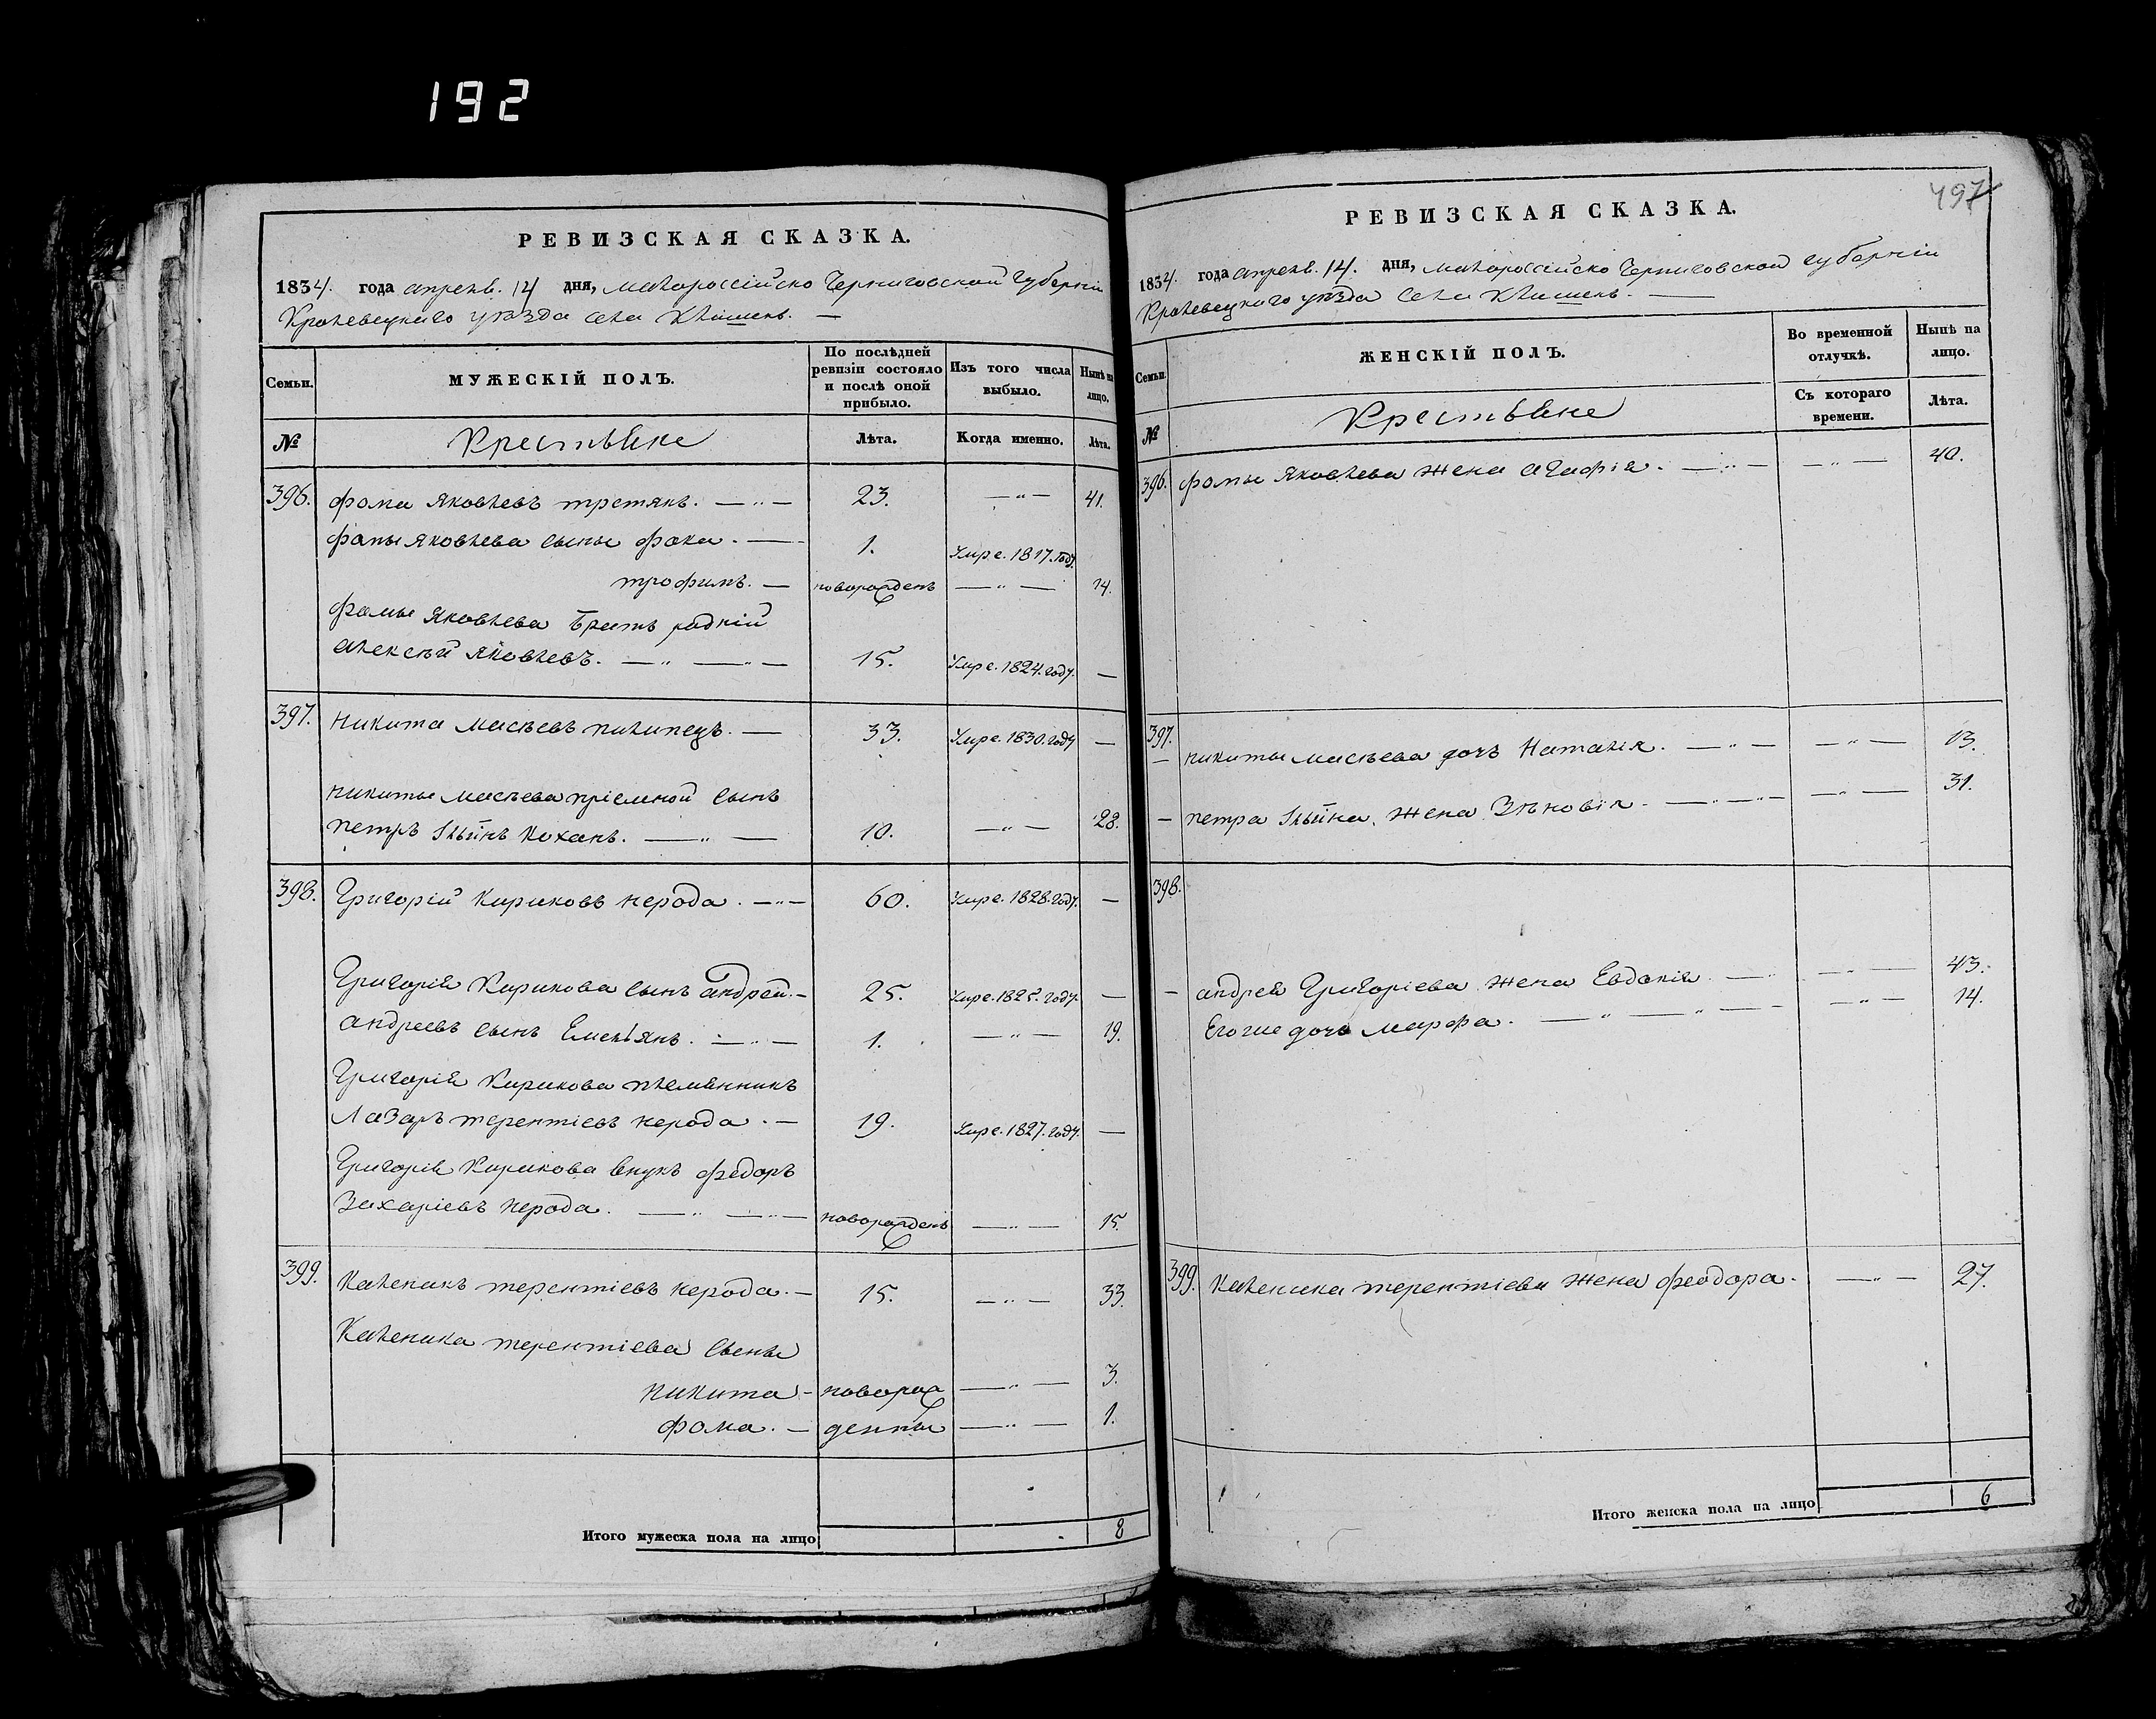 192
РЕВИЗСКАЯ СКАЗКА.
1834. года апрелѣ. 14 дня, малороссійско Черниговской губерніи
Кролевецкаго уѣзда села Клишекъ. —
Семьи.
МУЖЕСКІЙ ПОЛЪ.
По послѣдней ревизіи состояло и послѣ оной прибыло.
Изъ того числа выбыло.
Нынѣ на лицо.
№
Крестьяне
Лѣта.
Когда именно.
Лѣта.
396. Фома Яковлевъ третякъ. — „ — 23. — „ — 41.
Фомы Яковлева сыны Фока. — 1. Умре. 1817. году.
трофимъ. — новорожденъ — „ — 14.
Фомы Яковлева братъ родній
алексѣй Яковлевъ. — „ — „ — 15. Умре. 1824. году. —
397. Никита Мисѣевъ пилипецъ. — 33. Умре. 1830. году —
Никиты Мисѣева пріемной сынъ
петръ Ильинъ Коханъ. — „ — 10. — „ — 28.
398. Григорій Кириковъ нерода. — „ — 60. Умре. 1828. году. —
Григорія Кирикова сынъ андрей. — 25. Умре. 1825. году. —
андреевъ сынъ Емельянъ. — „ — 1. — „ — 19.
Григорія Кирикова племянникъ
Лазаръ терентіевъ нерода. — 19. Умре. 1827. году. —
Григорія Кирикова внукъ федоръ
Захаріевъ нерода. — „ — „ — новорожденъ — „ — 15.
399. Каленикъ терентіевъ нерода. — 15. — „ — 33.
Каленика терентіева сыны
никита — новорож — „ — 3.
фома. — денны — „ — 1.
Итого мужеска пола на лицо 8
497
РЕВИЗСКАЯ СКАЗКА.
1834. года апрелѣ. 14. дня, малороссійско Черниговской губерніи
Кролевецкаго уѣзда села Клишекъ. —
Семьи.
ЖЕНСКІЙ ПОЛЪ.
Во временной отлучкѣ.
Нынѣ на лицо.
№
Крестьяне
Съ котораго времени.
Лѣта.
396. Фомы Яковлева жена агафія. — „ — — „ — 40.
397. Никиты Мисѣева дочь Наталія. — „ — — „ — 13.
— петра Ильина жена Зѣновія. — „ — „ — — „ — 31.
398.
— андрея Григоріева жена Евдокія — „ — „ — 43.
Его же дочь марфа. — „ — „ — — „ — 14.
399. Каленика терентіева жена феодора. — „ — 27.
Итого женска пола на лицо 6